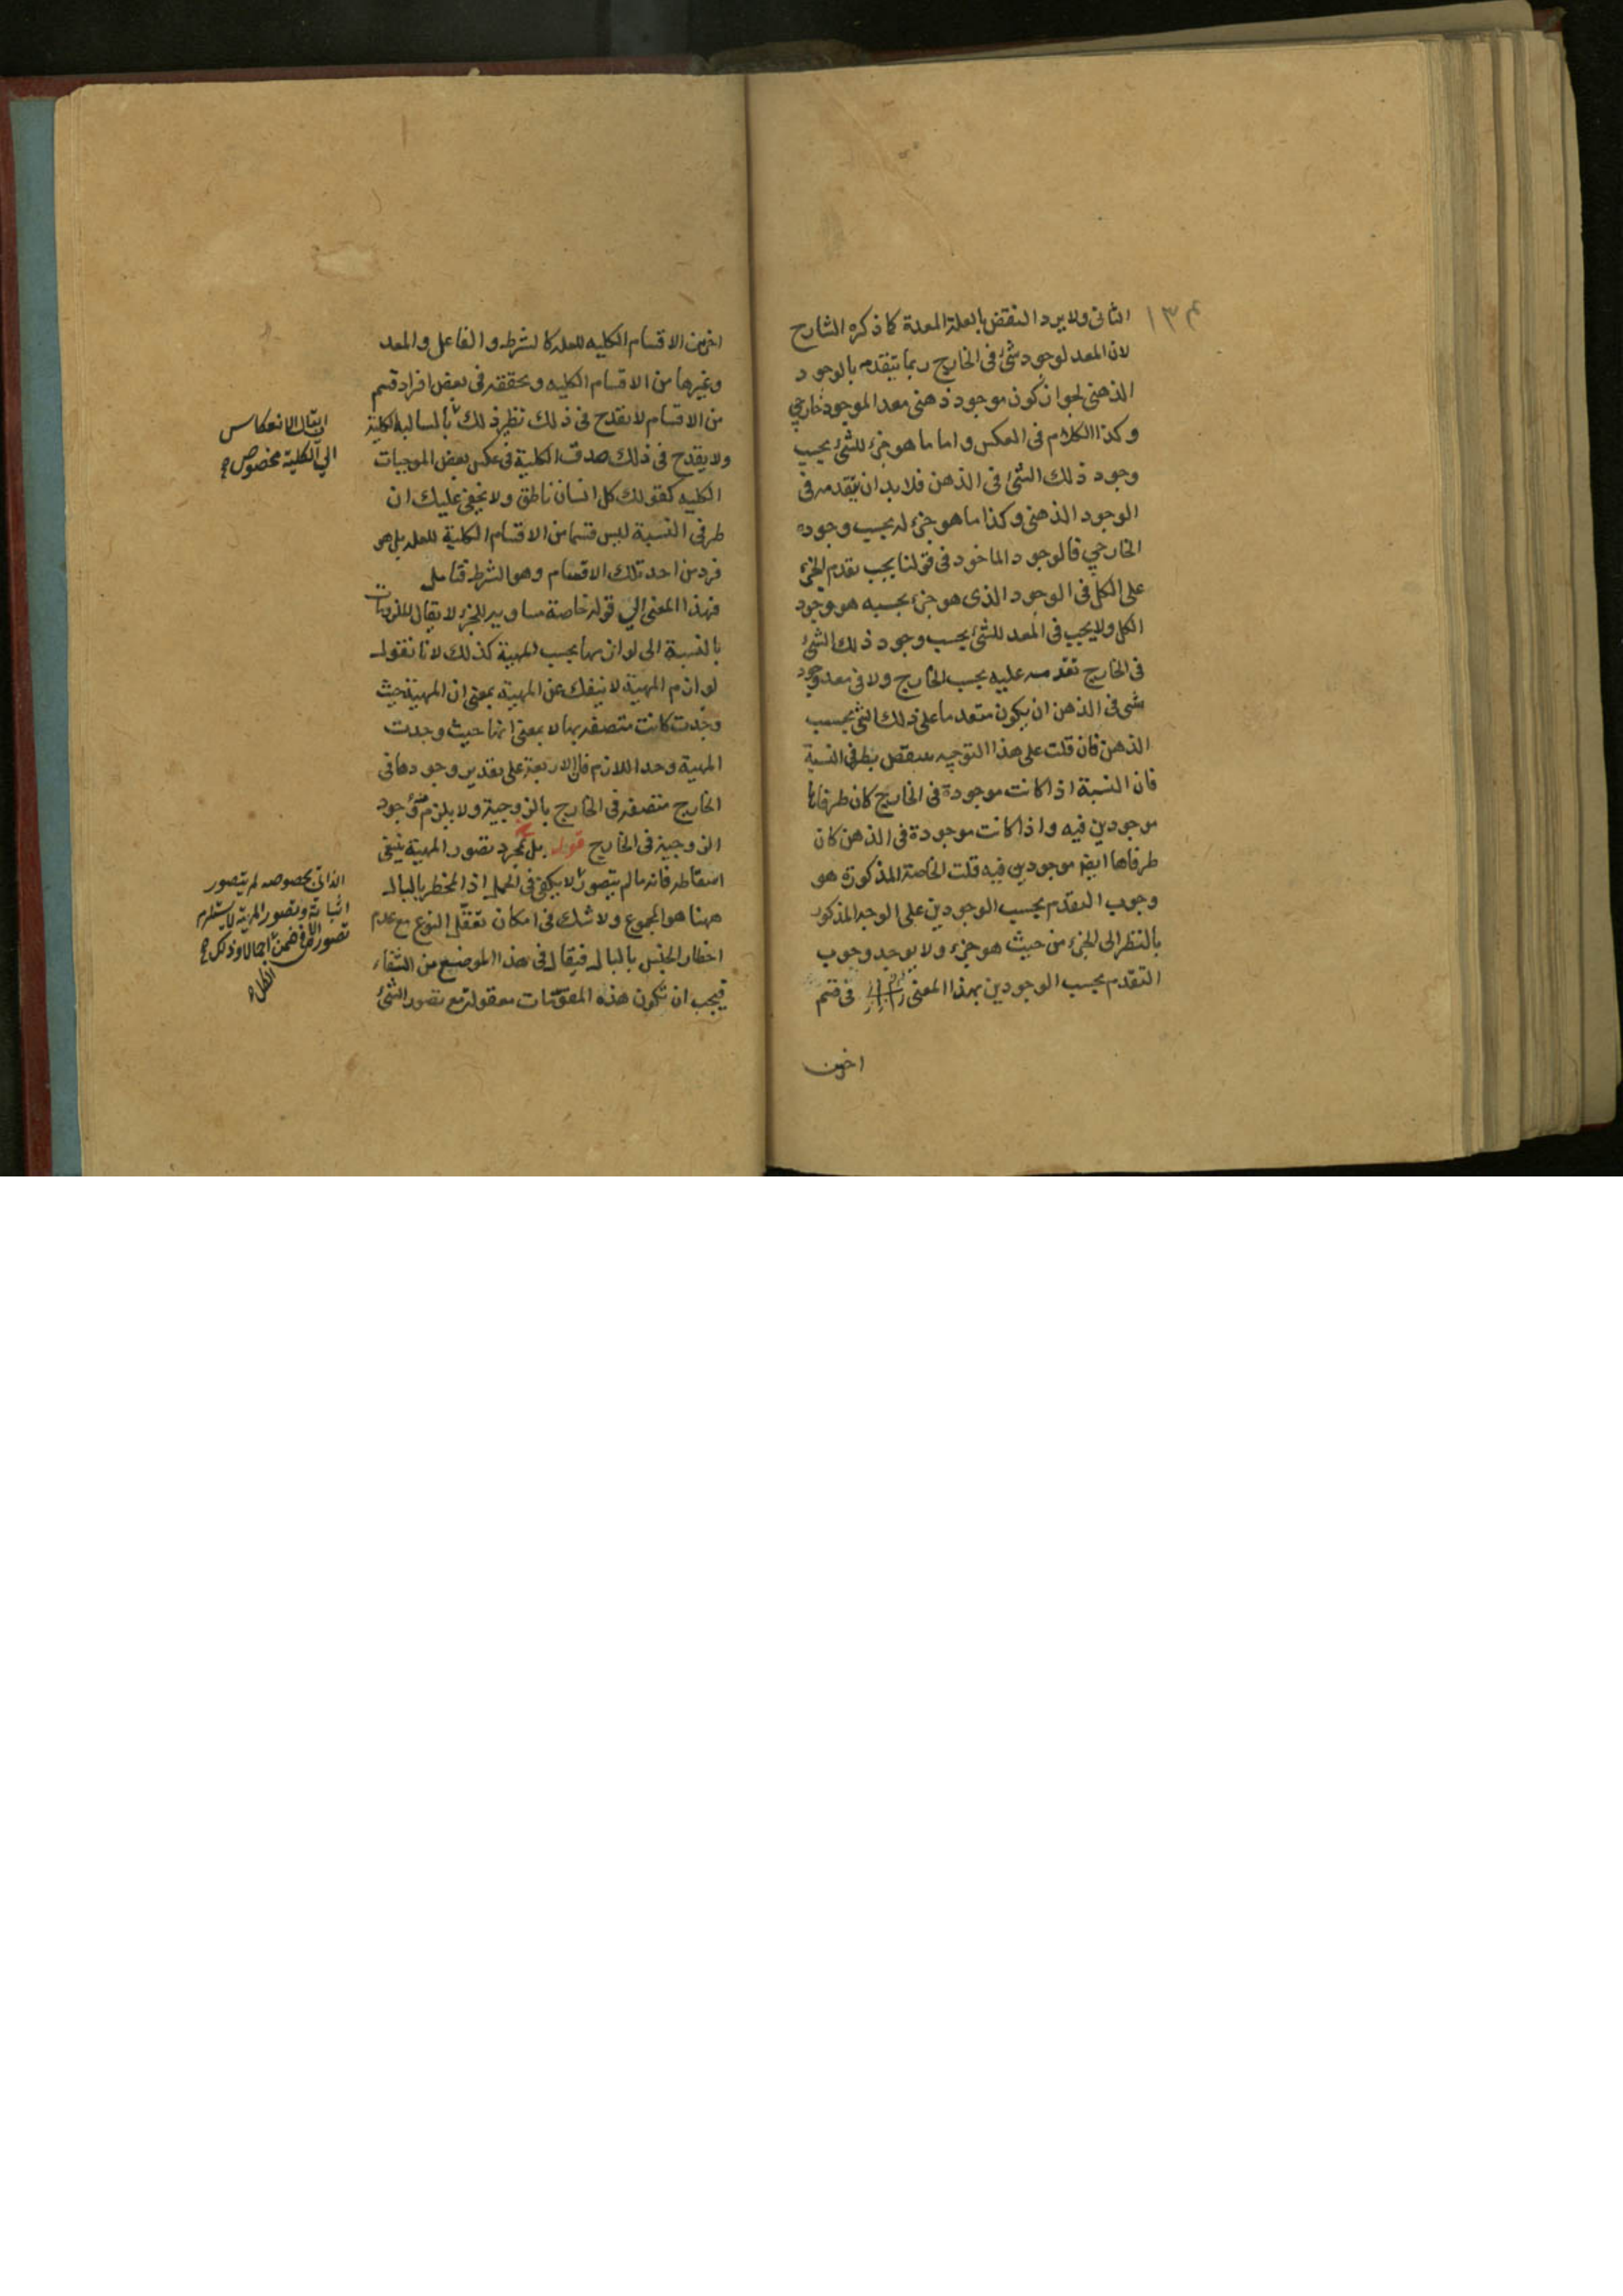 ١٣٤
الثانى ولا يرد النقض بالعلة المعدة كما ذكره الشارح
لان المعد لوجود شئ فى الخارج ربما يتقدم بالوجود
الذهنى لجواز كون موجود ذهنى معدا لموجود خارجي
وكذا الكلام فى العكس واما ما هو جزء للشئ بحسب
وجود ذلك الشئ فى الذهن فلا بد ان يتقدمه فى
الوجود الذهنى وكذا ما هو جزء له بحسب وجوده
الخارجي فالوجود الماخوذ فى قولنا يجب تقدم الجزء
على الكل فى الوجود الذى هو جزء بحسبه هو وجود
الكل ولا يجب فى المعد للشئ بحسب وجود ذلك الشئ
فى الخارج تقدمه عليه بحسب الخارج ولا فى معد وجود
شى فى الذهن ان يكون متقدما على ذلك الشئ بحسب
الذهن فان قلت على هذا التوجيه ينتقض بطرفى النسبة
فان النسبة اذا كانت موجودة فى الخارج كان طرفاها
موجودين فيه واذا كانت موجودة فى الذهن كان
طرفاها ايضا موجودين فيه قلت الخاصة المذكورة هو
وجوب التقدم بحسب الوجودين على الوجه المذكور
بالنظر الى الجزء من حيث هو جزء ولا يوجد وجوب
التقدم بحسب الوجودين بهذا المعنى فى قسم
اخر من
اخر من الاقسام الكليه للعله كالشرط والفاعل والمعد
وغيرها من الاقسام الكليه وتحققه فى بعض افراد قسم
من الاقسام لا يقدح فى ذلك نظير ذلك بالسالبة الكلية
ولا يقدح فى ذلك صدق الكلية فى عكس بعض الموجبات
الكليه كقولك كل انسان ناطق ولا يخفى عليك ان
طرفى النسبة ليس قسما من الاقسام الكلية للعله بل هو
فرد من احد تلك الاقسام وهو الشرط فتامل
فهذا المعنى الي قوله خاصة مساوية للجزء لا يقال الملزومات
بالنسبة الى لوازمها بحسب المهية كذلك لانا نقول
لوازم المهية لا ينفك عن المهية بمعنى ان المهية حيث
وجدت كانت متصفة بها لا بمعنى انها حيث وجدت
المهية وجد اللازم فان الاربعة على تقدير وجودها فى
الخارج متصفة فى الخارج بالزوجية ولا يلزم منه وجود
الزوجية فى الخارج قوله بل بمجرد تصور المهية ينبغى
اسقاطه فانه ما لم يتصور لا يكفى فى الحمل اذ المخطر بالبال
ههنا هو المجموع ولا شك فى امكان تعقل النوع مع عدم
اخطار الجنس بالبال فيقال فى هذا الموضع من الشفاء
فيجب ان تكون هذه المقومات معقولة مع تصور الشئ
ان يقال الانعكاس
الي الكلية مخصوص
الذاتى بخصوصه لم يتصور
اثباته وتصور المهية لا يستلزم